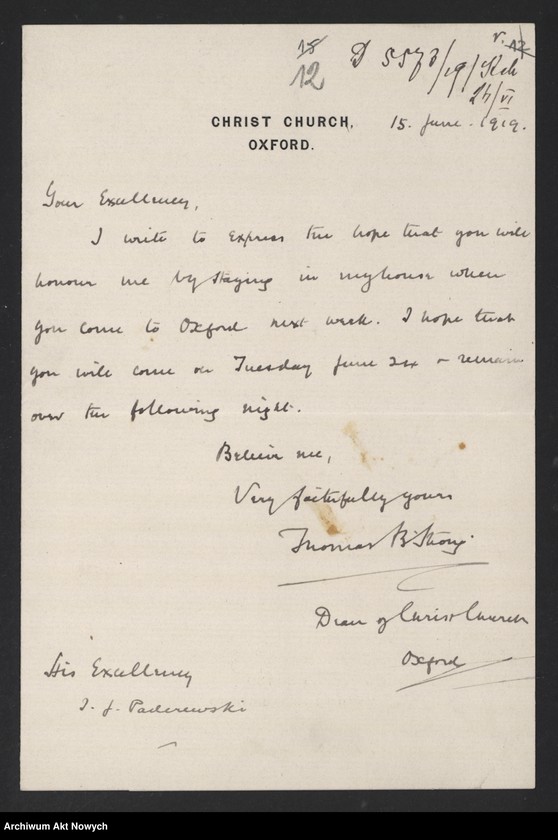 18
12
D 5573/19/
24/VI
CHRIST CHURCH,
OXFORD.
15. June. 1919.
Your Excellency,
I write to express the hope that you will
honour me by staying in my house when
you come to Oxford next week. I hope that
you will come on Tuesday June 24 & remain
over the following night.
Believe me,
Very faithfully yours
Thomas B. Strong.
Dean of Christ Church
Oxford
His Excellency
I. J. Paderewski
Archiwum Akt Nowych